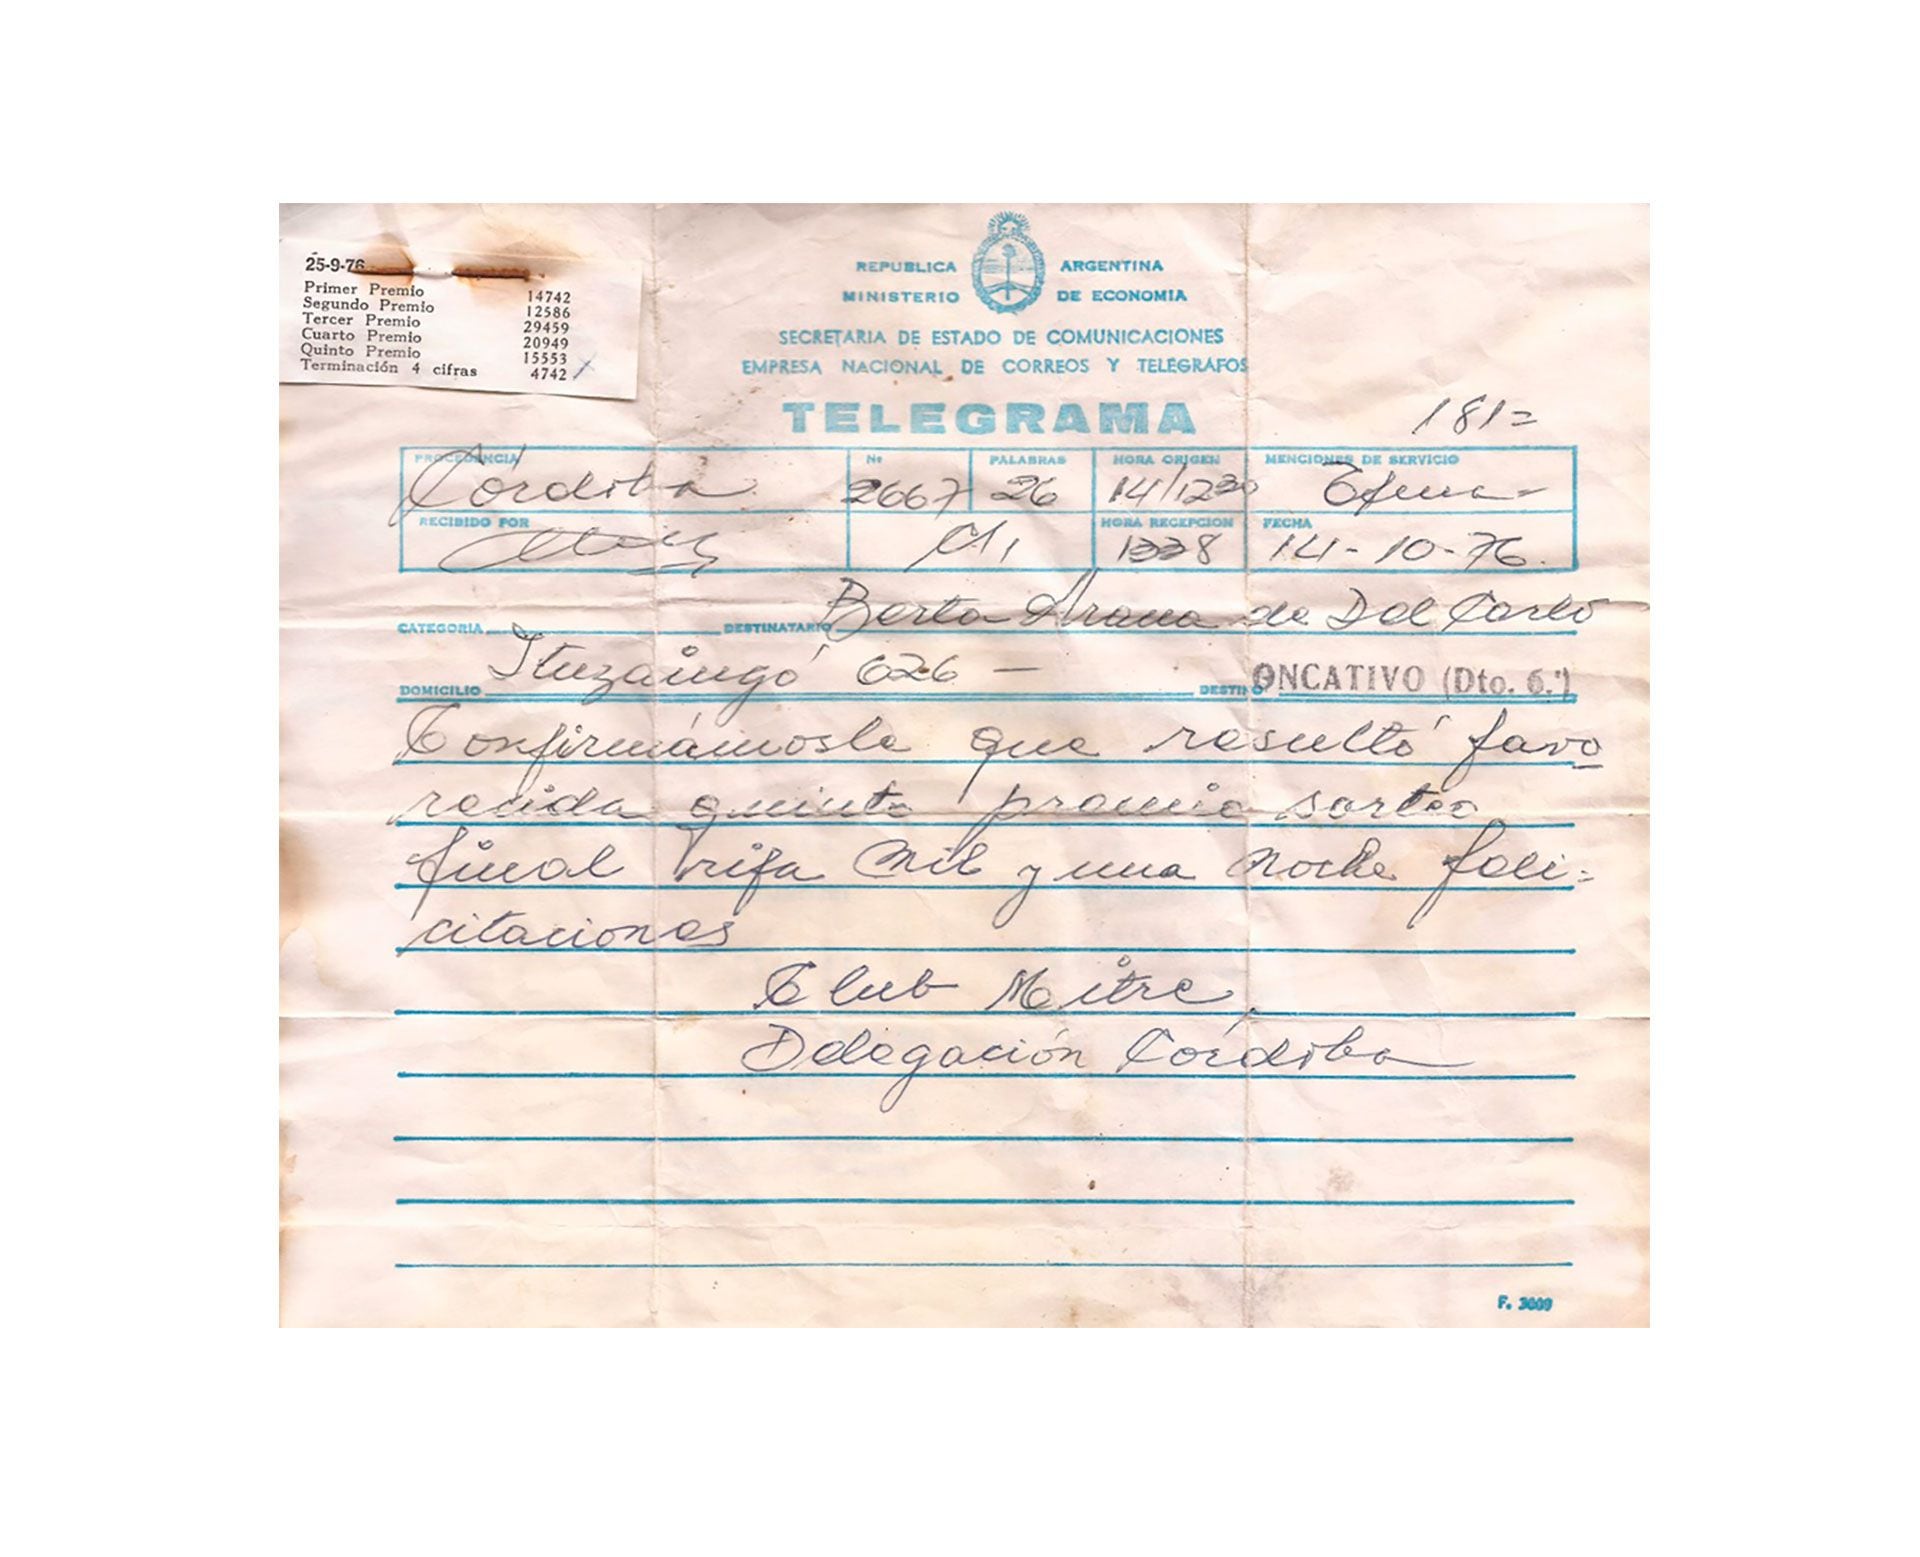 25-9-76
Primer Premio 14742
Segundo Premio 12586
Tercer Premio 29459
Cuarto Premio 20949
Quinto Premio 15553
Terminación 4 cifras 4742
REPUBLICA ARGENTINA
MINISTERIO DE ECONOMIA
SECRETARIA DE ESTADO DE COMUNICACIONES
EMPRESA NACIONAL DE CORREOS Y TELEGRAFOS
TELEGRAMA
181=
PROCEDENCIA Nº PALABRAS HORA ORIGEN MENCIONES DE SERVICIO
Córdoba 2667 26 14/1230
RECIBIDO POR HORA RECEPCION FECHA
14-10-76.
CATEGORIA DESTINATARIO Berta Arana de Del Carlo
DOMICILIO Ituzaingó 626 - DESTINO ONCATIVO (Dto. 6.º)
Confirmámosle que resultó favo
recida quinto premio sorteo
final rifa Mil y una noche feli-
citaciones
Club Mitre
Delegación Córdoba
F. 3009